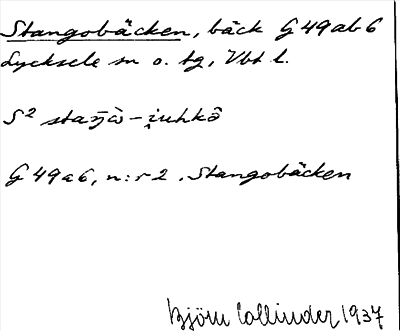 Stangobäcken, bäck G 49ab6
Lycksele sn o. tg, Vbt l.
S² staŋ̄ò̀-i̯uhkô
G 49a6, n:r 2. Stangobäcken
Björn Collinder 1937